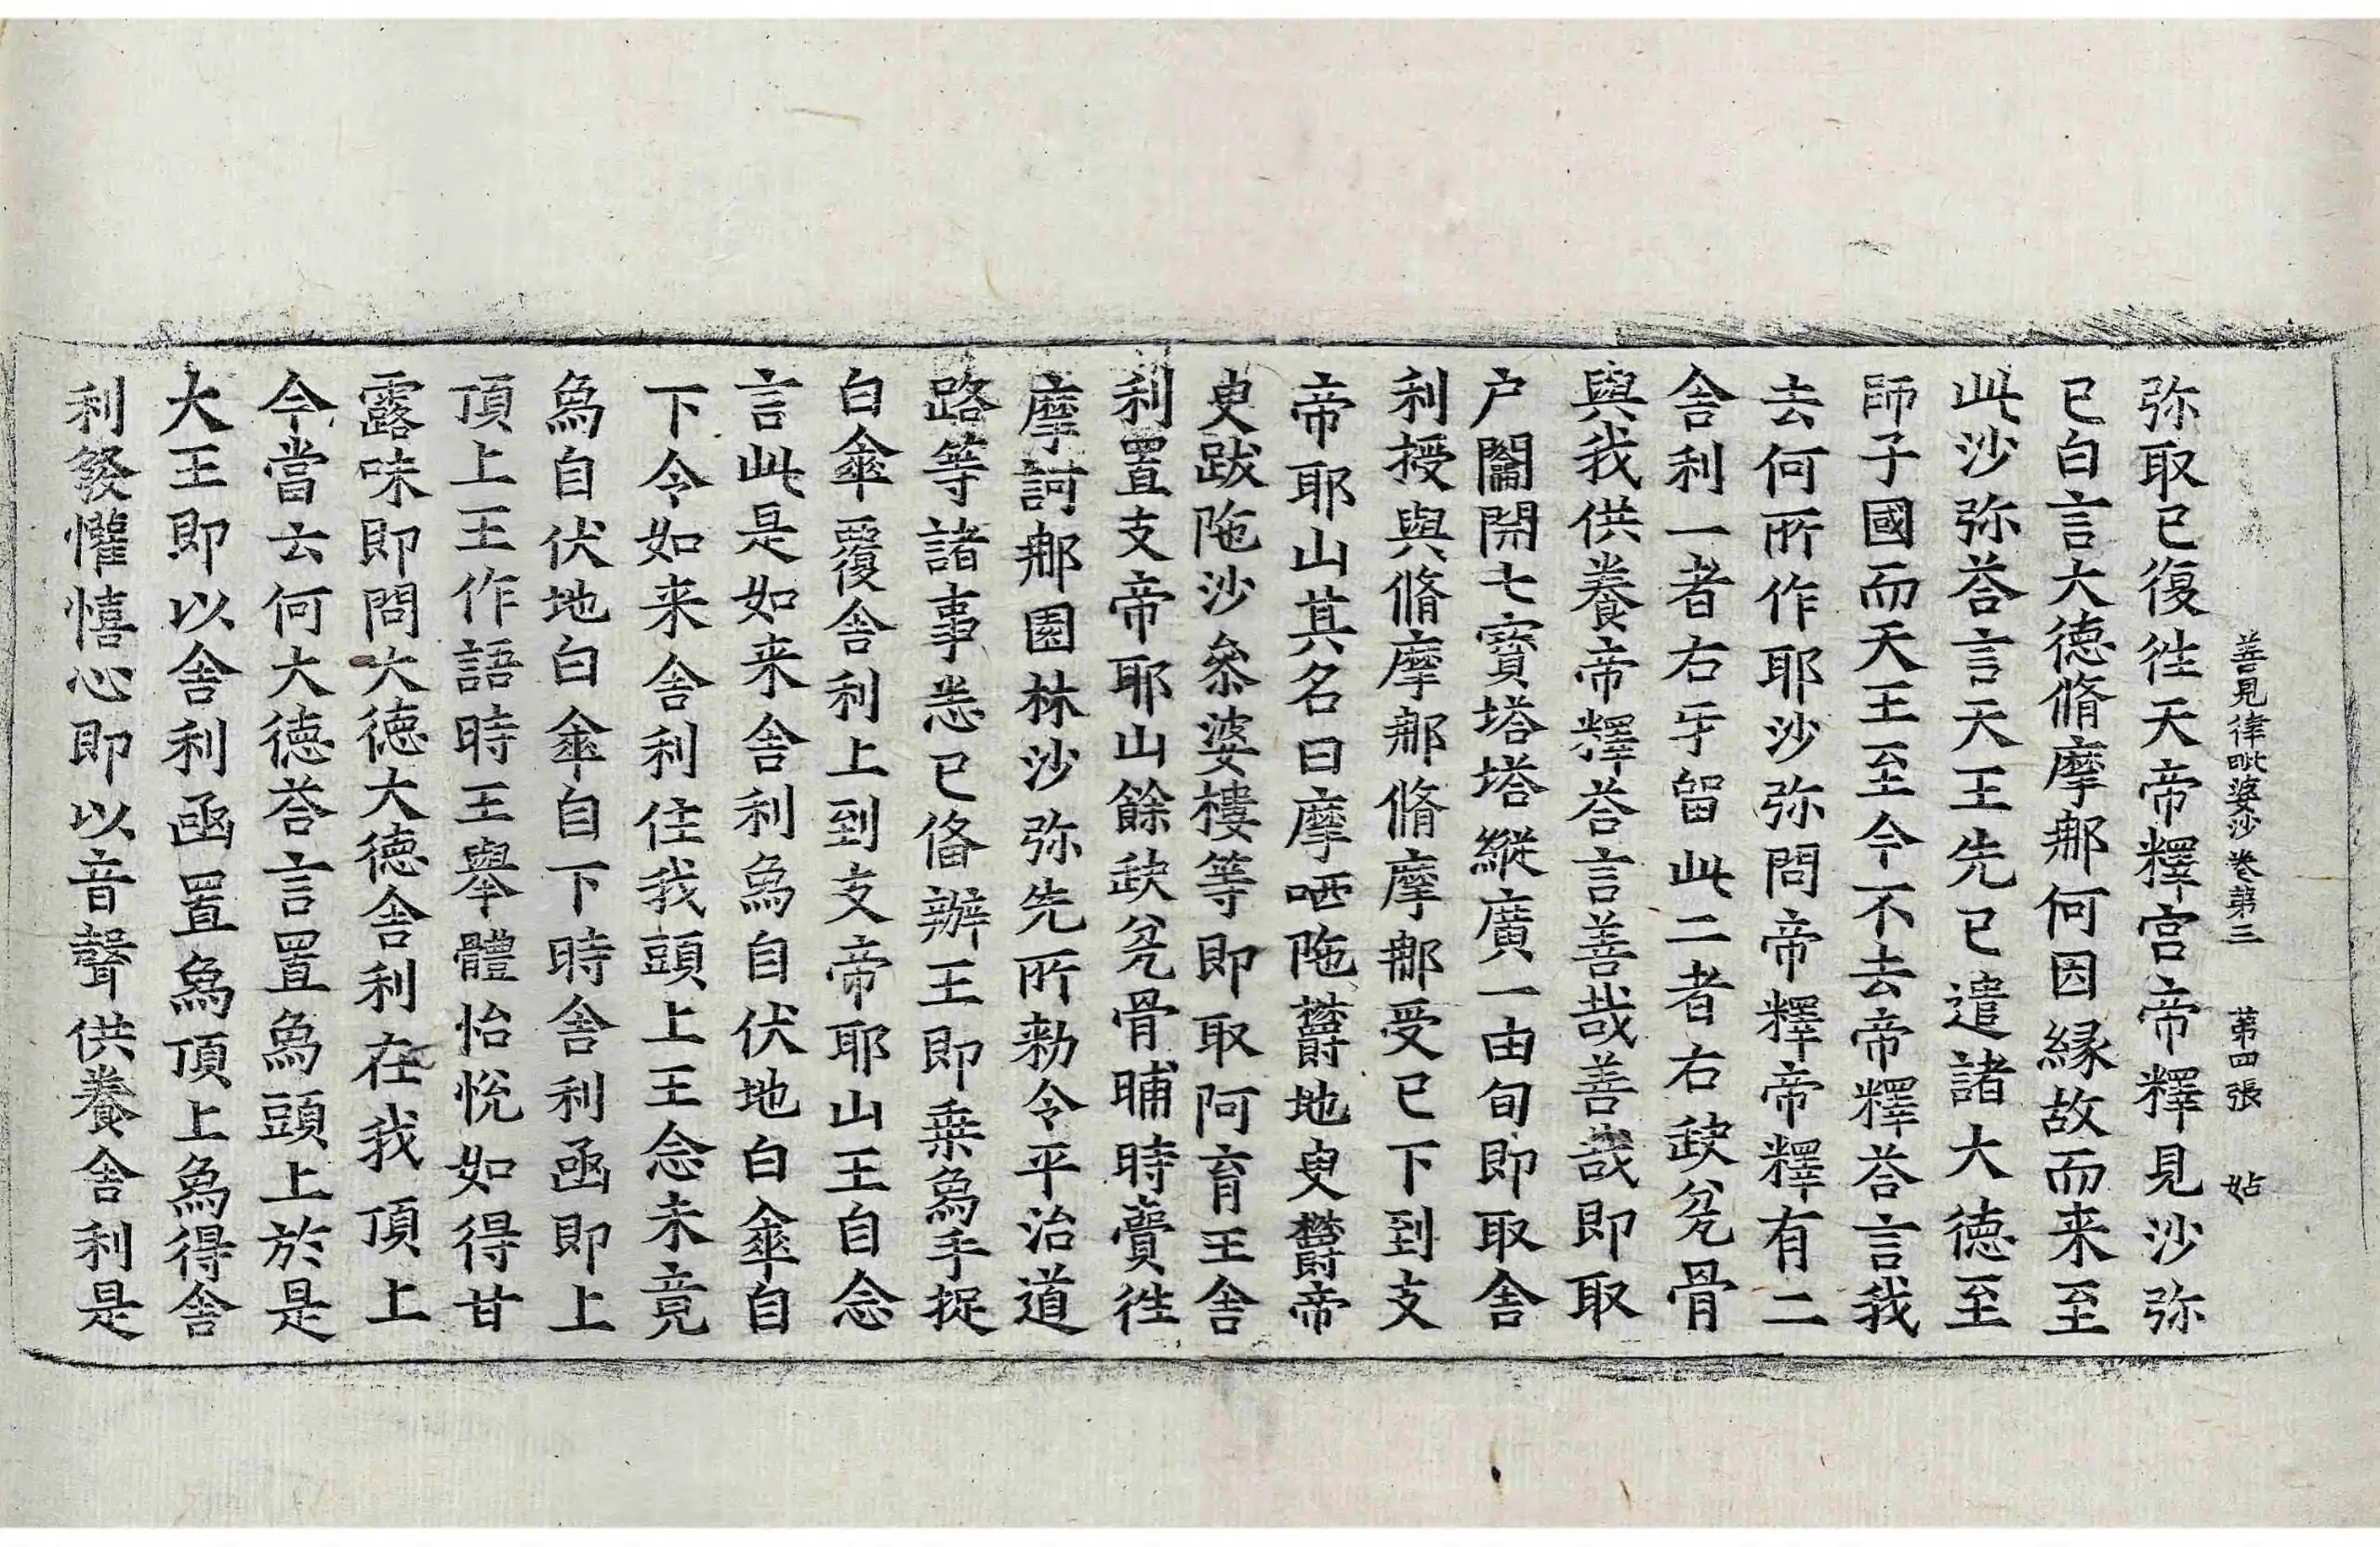 善見律毗婆沙卷第三　第四張　姑
弥取已復徃天帝釋宫帝釋見沙弥
已白言大德脩摩𨚗何因緣故而来至
此沙弥荅言天王先已遣諸大德至
師子國而天王至今不去帝釋荅言我
去何所作耶沙弥問帝釋帝釋有二
舍利一者右牙留此二者右缺瓫骨
與我供養帝釋荅言善哉善哉即取
户鬮開七寳塔塔縱廣一由旬即取舍
利授與脩摩𨚗脩摩𨚗受已下到支
帝耶山其名曰摩哂陁欝地臾欝帝
臾跋陁沙叅婆樓等即取阿育王舍
利置支帝耶山餘缺瓫骨晡時賷徃
摩訶𨚗園林沙弥先所勑令平治道
路等諸事悉已俻辦王即乗象手捉
白傘覆舍利上到支帝耶山王自念
言此是如来舍利象自伏地白傘自
下令如来舍利住我頭上王念未竟
象自伏地白傘自下時舍利函即上
頂上王作語時王舉體怡悅如得甘
露味即問大德大德舍利在我頂上
今當云何大德荅言置象頭上於是
大王即以舍利函置象頂上象得舍
利發懽憘心即以音聲供養舍利是